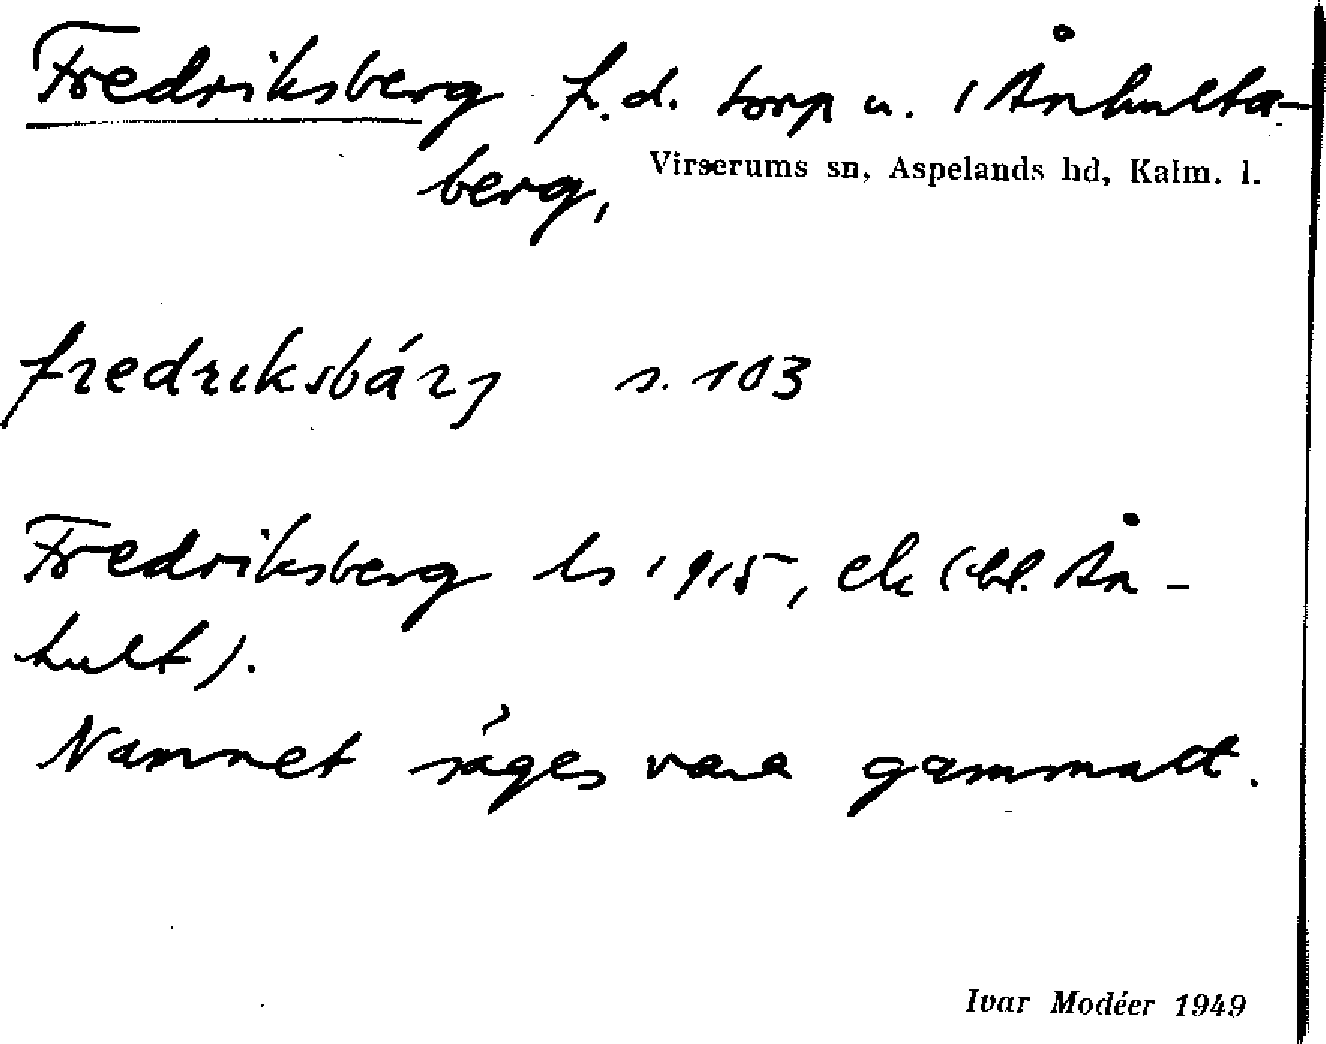 Fredriksberg f.d. torp u. Ånhulta-
berg, Virserums sn, Aspelands hd, Kalm. l.
fredriksbárj s. 103
Fredriksberg ls 1915, ek (bl. Ån-
hult).
Namnet säges vara gammalt.
Ivar Modéer 1949